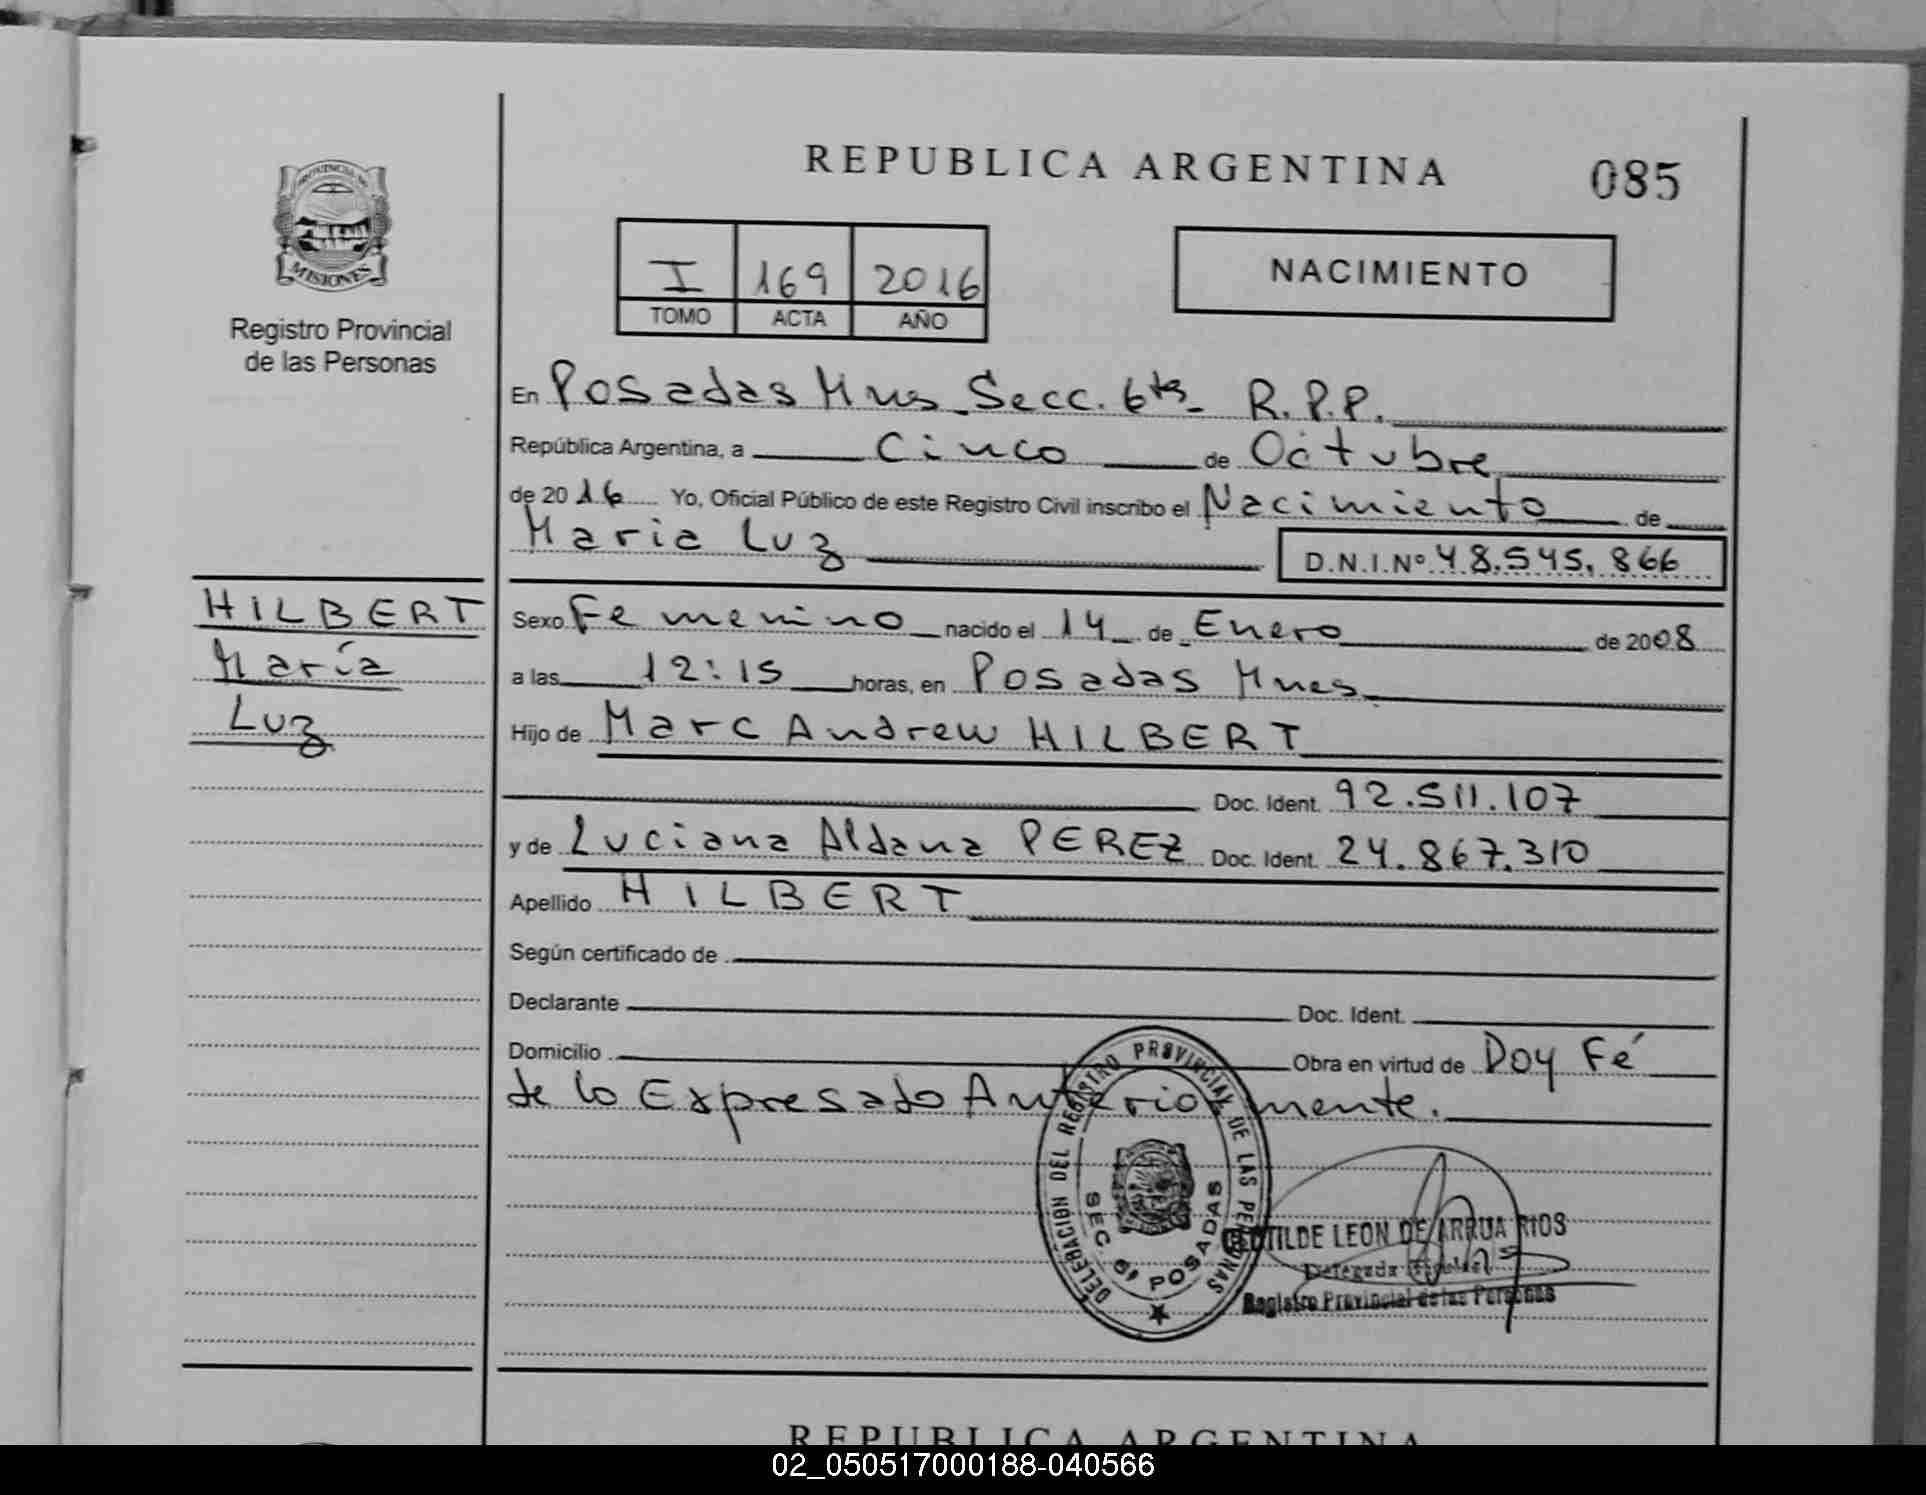 REPUBLICA ARGENTINA
085
PROVINCIA DE
MISIONES
Registro Provincial
de las Personas
I 169 2016
TOMO ACTA AÑO
NACIMIENTO
En Posadas Mnes. Secc. 6ta. R.P.P.
República Argentina, a Cinco de Octubre
de 2016 Yo, Oficial Público de este Registro Civil inscribo el Nacimiento de
Maria Luz D.N.I.Nº 48.545.866
HILBERT
María
Luz
Sexo Femenino nacido el 14 de Enero de 2008
a las 12:15 horas, en Posadas Mnes
Hijo de Marc Andrew HILBERT
Doc. Ident. 92.511.107
y de Luciana Aldana PEREZ Doc. Ident. 24.867.310
Apellido HILBERT
Según certificado de
Declarante Doc. Ident.
Domicilio Obra en virtud de Doy Fé
de lo Expresado Anteriormente.
DELEGACION DEL REGISTRO PROVINCIAL DE LAS PERSONAS
SEC. 6ª POSADAS
CLOTILDE LEON DE ARRUA RIOS
Delegada Titular
Registro Provincial de las Personas
REPUBLICA ARGENTINA
02_050517000188-040566